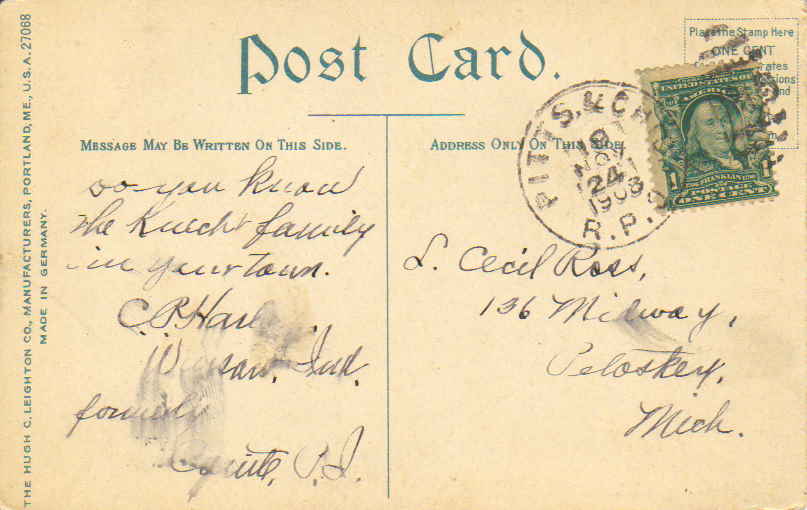 Post Card.
Place the Stamp Here
ONE CENT
MESSAGE MAY BE WRITTEN ON THIS SIDE.
ADDRESS ONLY ON THIS SIDE.
UNITED STATES OF
AMERICA
FRANKLIN
POSTAGE
ONE CENT
PITTS. & CHI
NOV
24
1908
R.P.O.
Do you know
the Knecht family
in your town.
C. P.
Warsaw, Ind.
formerly
Cavite, P.I.
L. Cecil Ross,
136 Midway,
Petoskey,
Mich.
THE HUGH C. LEIGHTON CO., MANUFACTURERS, PORTLAND, ME., U.S.A. 27068
MADE IN GERMANY.